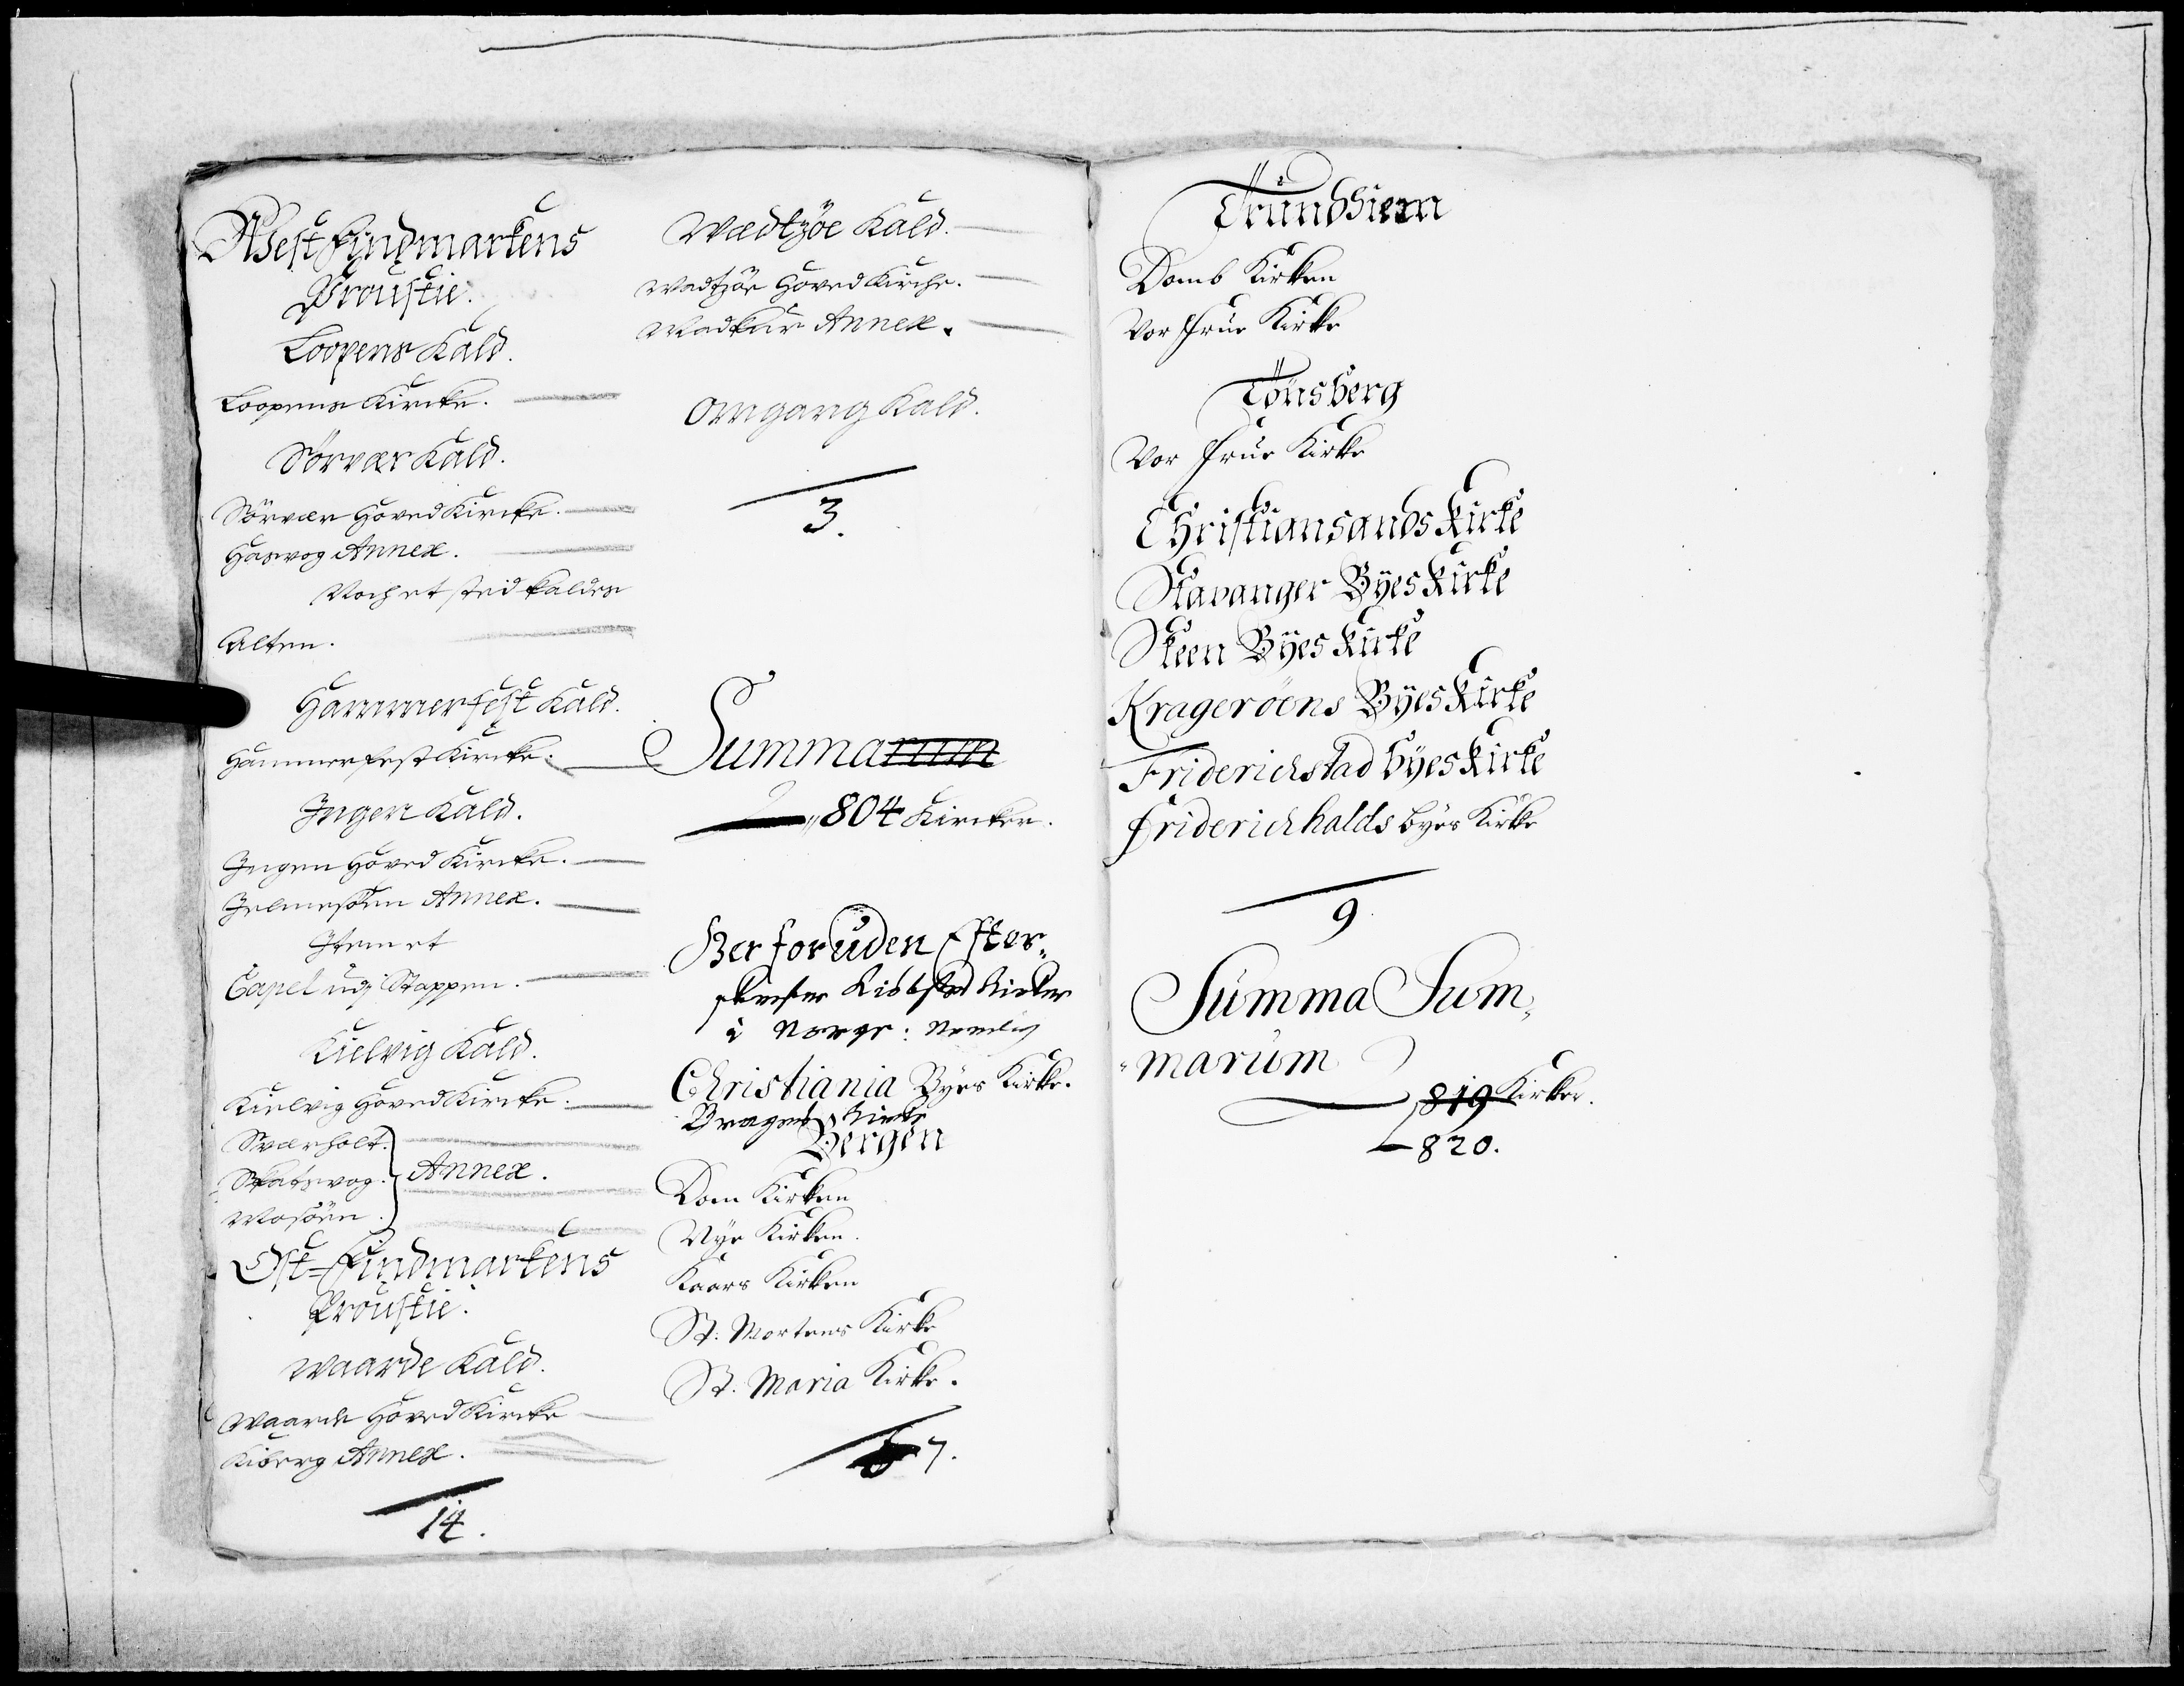 West Findmarkens
Proustie.
Loopens Kald.
Loopens Kircke.
Sörvær Kald.
Sörvær Hoved Kircke.
Hasvog Annex.
Noch et sted kaldes
Alten.
Hammerfest Kald.
Hammerfest Kircke.
Ingen Kald.
Ingen Hoved Kircke.
Jelmesöen Annex.
Item et
Capel udj Stappen.
Kielvig Kald.
Kielvig Hoved Kircke.
Sværholt.
Skatsvog. Annex.
Mosöen.
Ost-Findmarkens
Proustie.
Waarde Kald.
Waarde Hoved Kircke
Kiberg Annex.
14.
Wadtzöe Kald.
Wadtzöe Hoved Kirche.
Madkur Annex.
Omgang Kald.
3.
Summarum
804 Kircker.
Der foruden Efter-
skrefne Kiöbsted Kirker
i Norge: Nemlig
Christiania Byes Kirke.
Bragnes Kirke
Bergen
Dom Kirken
Nye Kirken.
Kaars Kirken
St: Mortens Kirke
St. Maria Kirke.
7.
Trundhiem
Domb Kirken
Vor Frue Kirke
Tönsberg
Vor Frue Kirke
Christiansands Kirke
Stavanger Byes Kirke
Skeen Byes Kirke
Krageröens Byes Kirke
Friderichstad Byes Kirke
Friderichhalds Byes Kirke
9
Summa Sum-
marum
819 Kirker.
820.